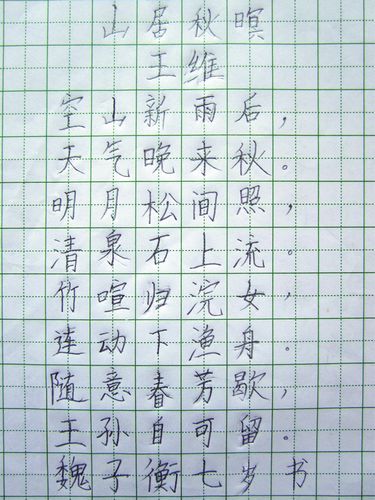 山居秋暝
王维
空山新雨后，
天气晚来秋。
明月松间照，
清泉石上流。
竹喧归浣女，
连动下渔舟。
随意春芳歇，
王孙自可留。
魏子衡七岁书